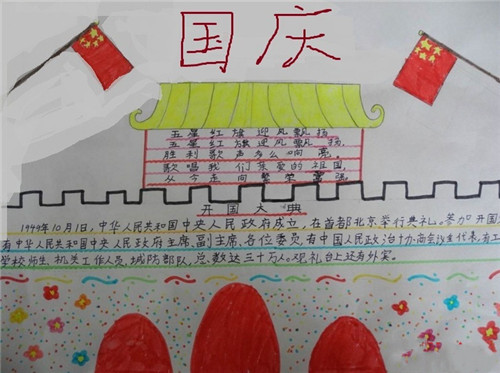 国庆
五星红旗迎风飘扬
五星红旗迎风飘扬,
胜利歌声多么响亮。
歌唱我们亲爱的祖国,
从今走向繁荣富强。
开国大典
1949年10月1日,中华人民共和国中央人民政府成立,在首都北京举行典礼。参加开国
有中华人民共和国中央人民政府主席,副主席、各位委员,有中国人民政治协商会议全体代表,有工
学校师生、机关工作人员,城防部队,总数达三十万人。观礼台上还有外宾。